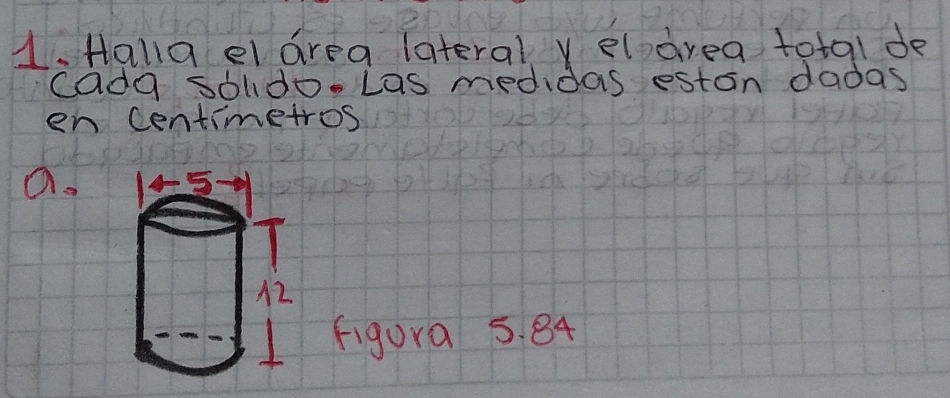 1. Halla el área lateral y el área total de
cada sólido. Las medidas están dadas
en centímetros
a. 5
12
Figura 5.84